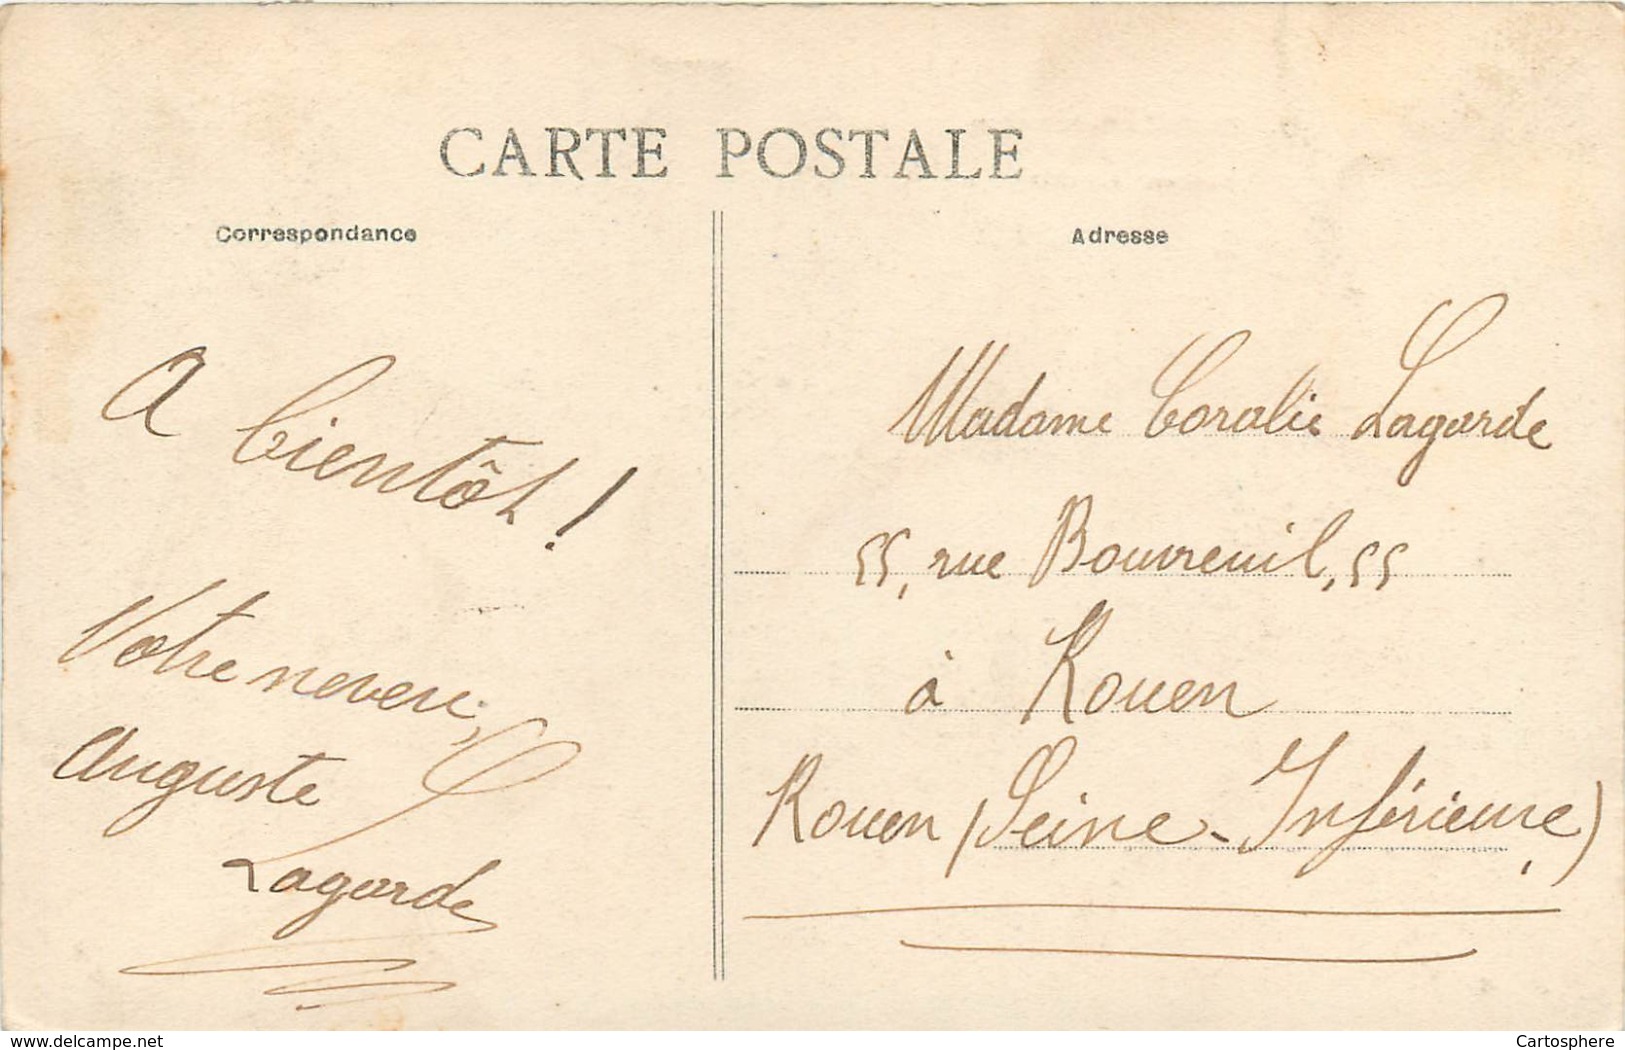 CARTE POSTALE
Correspondance
A bientôt !
Votre neveu,
Auguste
Lagarde
Adresse
Madame Coralie Lagarde
55, rue Bouvreuil, 55
à Rouen
Rouen (Seine-Inférieure)
www.delcampe.net
Cartosphere